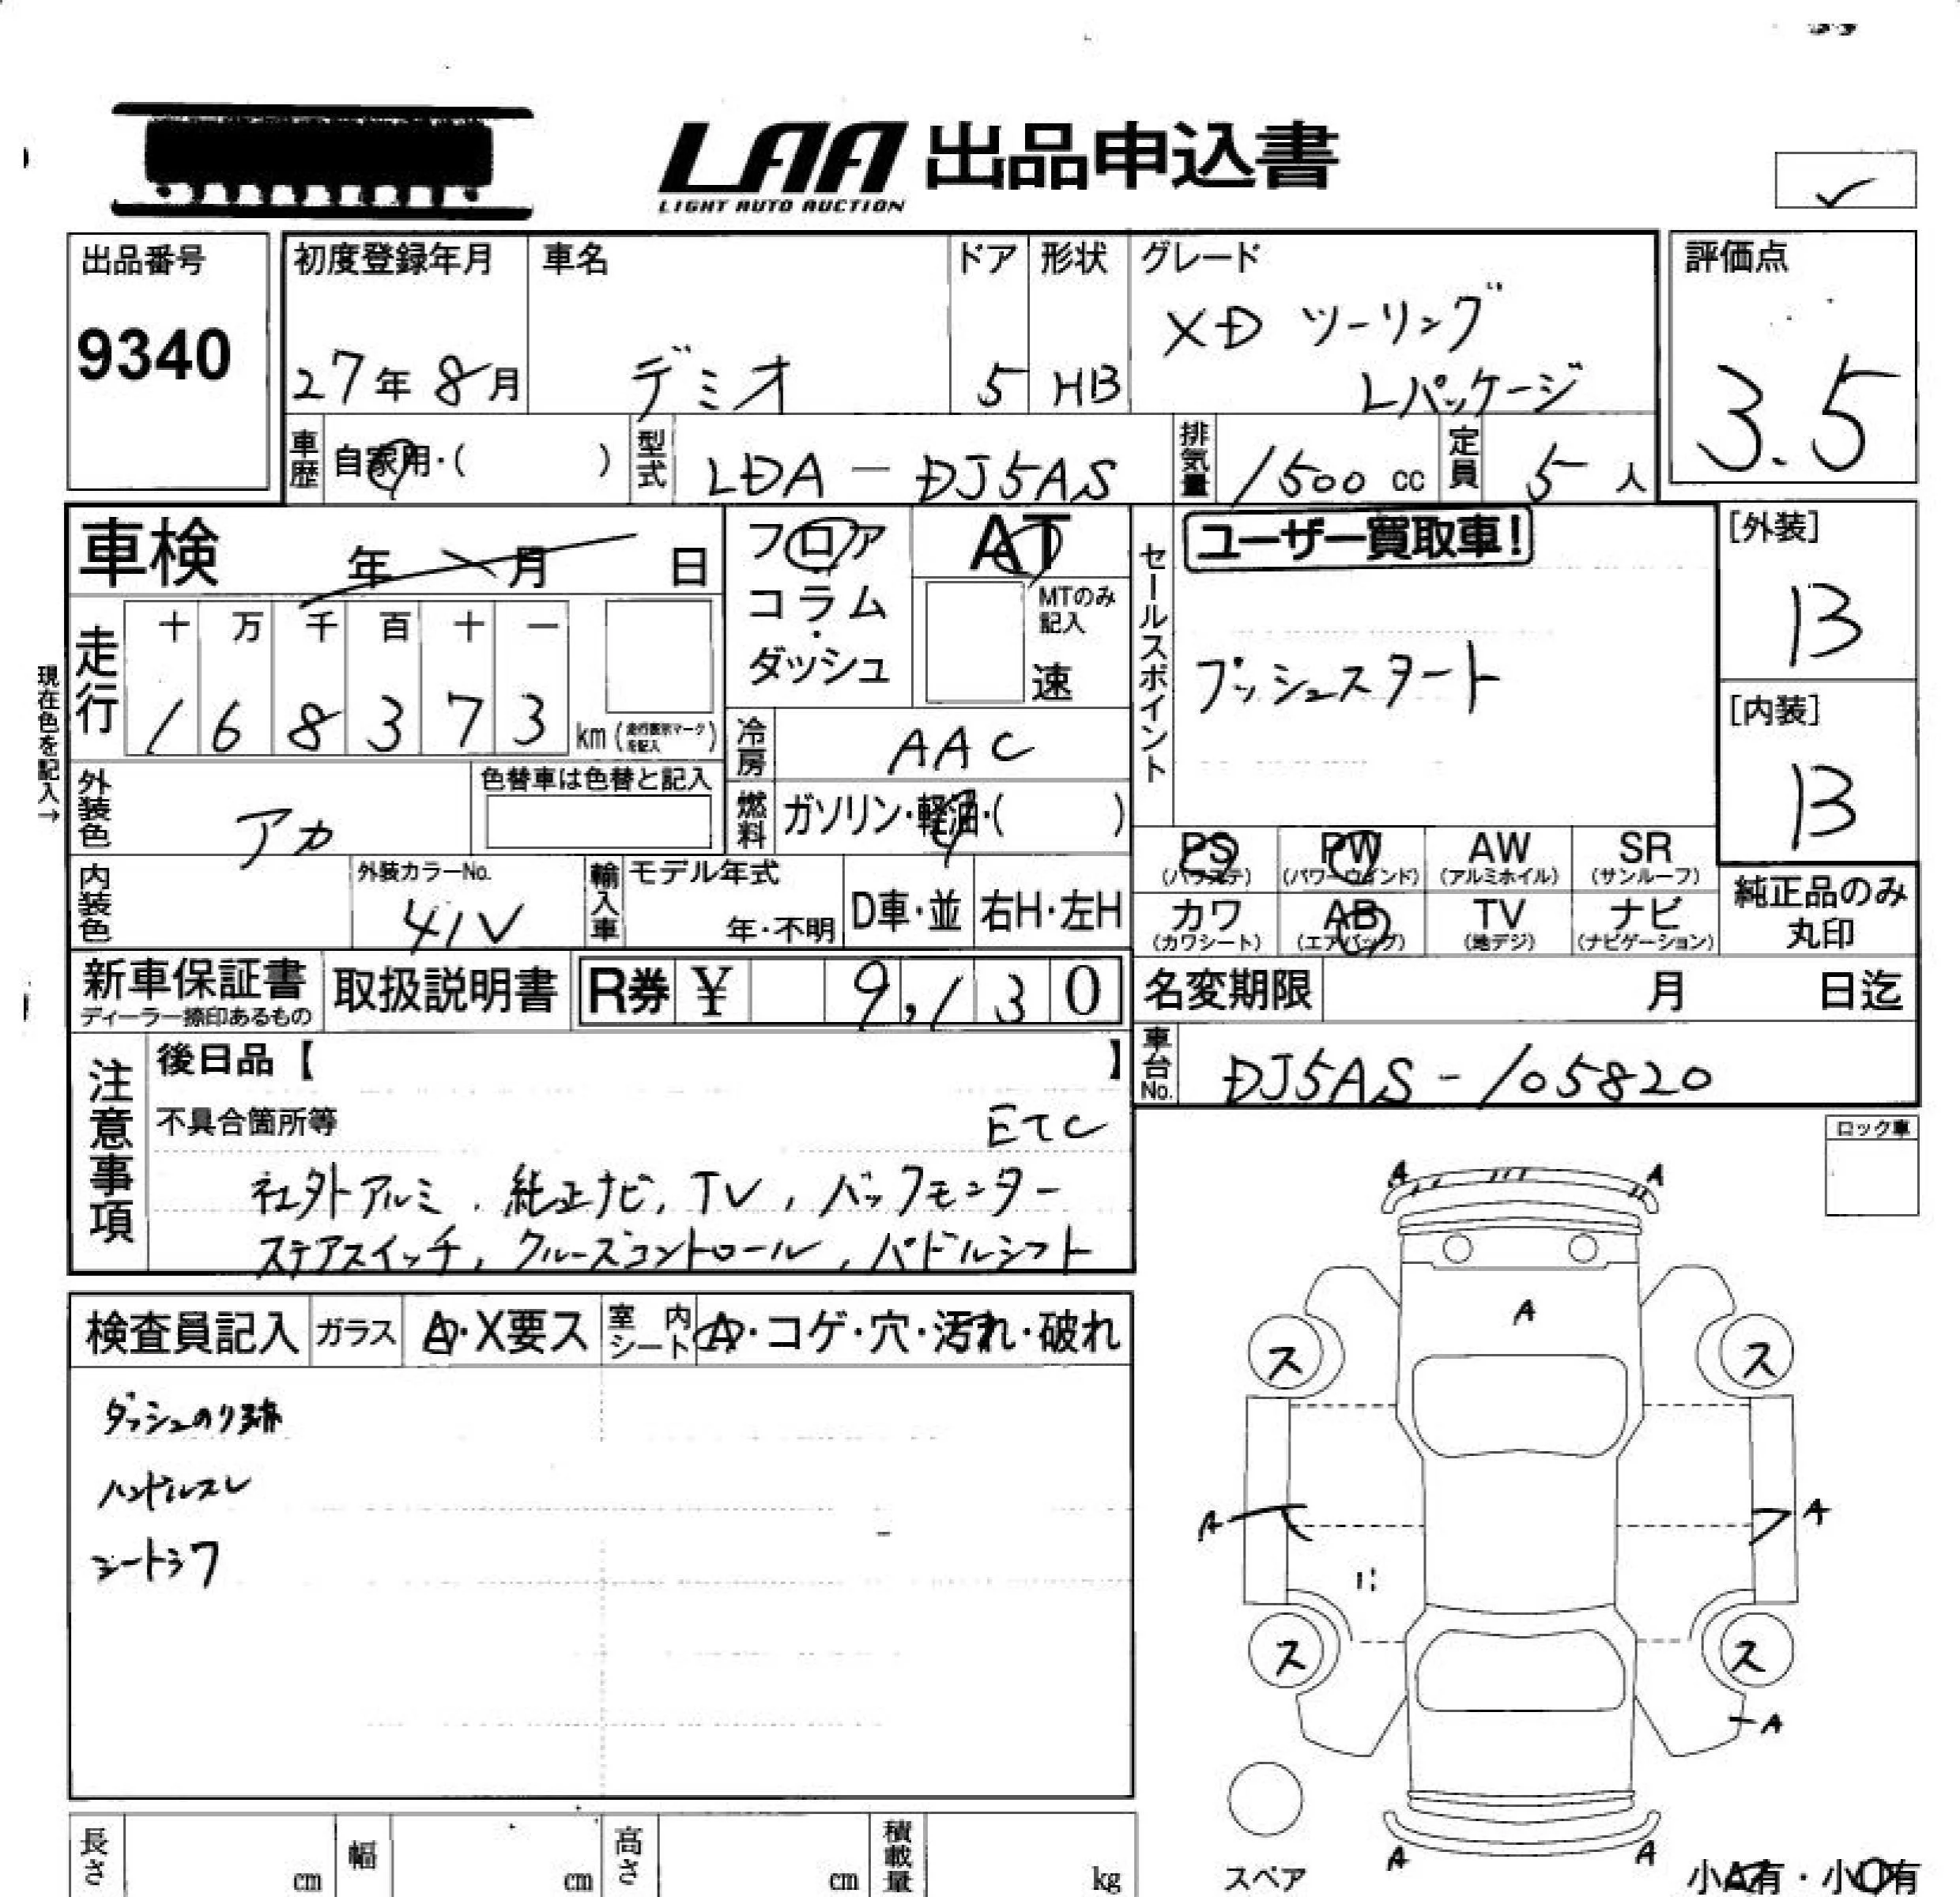 LAA 出品申込書
LIGHT AUTO AUCTION
出品番号
9340
初度登録年月
27年 8月
車名
デミオ
ドア
5
形状
HB
グレード
XD ツーリング
Lパッケージ
評価点
3.5
車歴
自家用・( )
型式
LDA-DJ5AS
排気量
1500 cc
定員
5人
車検 年 月 日
フロア
コラム
・
ダッシュ
AT
MTのみ
記入
速
セールスポイント
ユーザー買取車!
プッシュスタート
[外装]
B
[内装]
B
現在色を記入→
走行
十 万 千 百 十 一
1 6 8 3 7 3
km(走行表示マークを記入)
冷房
AAC
外装色
アカ
色替車は色替と記入
燃料
ガソリン・軽油・( )
PS
(パワステ)
PW
(パワーウインド)
AW
(アルミホイル)
SR
(サンルーフ)
内装色
外装カラーNo.
41V
輸入車
モデル年式
年・不明
D車・並
右H・左H
カワ
(カワシート)
AB
(エアバッグ)
TV
(地デジ)
ナビ
(ナビゲーション)
純正品のみ
丸印
新車保証書
ディーラー捺印あるもの
取扱説明書
R券 ¥ 9,130
名変期限 月 日迄
注意事項
後日品【 】
車台No.
DJ5AS-105820
不具合箇所等
ETC
社外アルミ, 純正ナビ, TV, バックモニター
ステアスイッチ, クルーズコントロール, パドルシフト
ロック車
検査員記入
ガラス
A・X要ス
室内シート
A・コゲ・穴・汚れ・破れ
ダッシュのり跡
ハンドルスレ
シートシワ
A A
A
ス ス
A A
ス ス
A
A A
スペア
小A有・小U有
長さ cm
幅 cm
高さ cm
積載量 kg